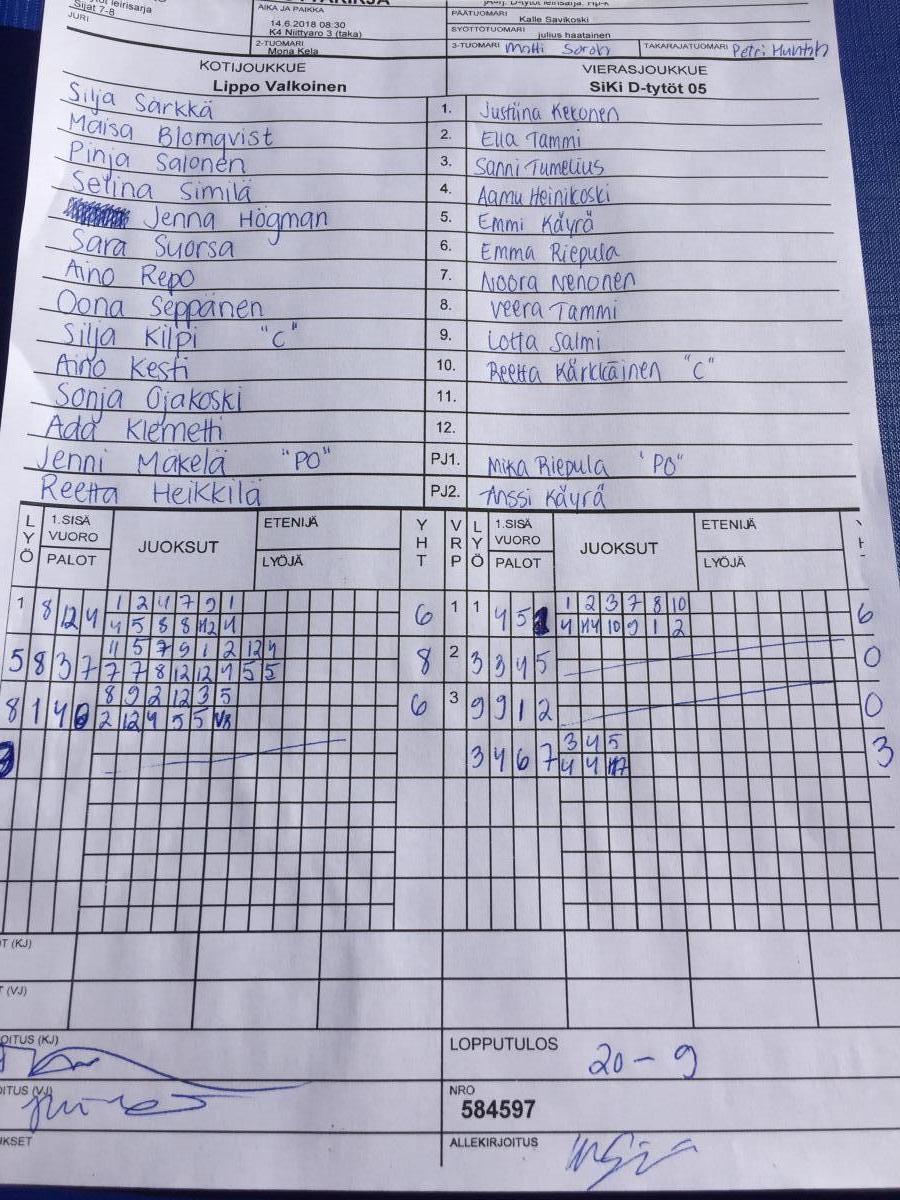 leirisarja
Sijat 7-8
JURI
AIKA JA PAIKKA
14.6.2018 08:30
K4 Niittyaro 3 (taka)
2-TUOMARI
Mona Kela
PÄÄTUOMARI
Kalle Savikoski
SYÖTTÖTUOMARI
julius haatainen
3-TUOMARI Matti
TAKARAJATUOMARI Petri
KOTIJOUKKUE VIERASJOUKKUE
Lippo Valkoinen SiKi D-tytöt 05
Silja Särkkä 1. Justiina Kekonen
Maisa Blomqvist 2. Ella Tammi
Pinja Salonen 3. Sanni Tumelius
Selina Similä 4. Aamu Heinikoski
Jenna Högman 5. Emmi Käyrä
Sara Suorsa 6. Emma Riepula
Aino Repo 7. Noora Nenonen
Oona Seppänen 8. Veera Tammi
Silja Kilpi "C" 9. Lotta Salmi
Aino Kesti 10. Reetta Kärkkäinen "C"
Sonja Ojakoski 11.
Ada Klemetti 12.
Jenni Mäkelä "PO" PJ1. Mika Riepula "PO"
Reetta Heikkilä PJ2. Anssi Käyrä
LYÖ 1.SISÄ VUORO PALOT JUOKSUT ETENIJÄ LYÖJÄ YHT VRP LYÖ 1.SISÄ VUORO PALOT JUOKSUT ETENIJÄ LYÖJÄ
1 8 12 4 1 2 4 7 9 1 6 1 1 4 5 1 2 3 7 8 10 6
4 5 8 8 4 10 9 1 2
5 8 3 7 5 7 9 1 2 12 4 8 2 3 3 4 5 0
7 7 8 12 12 4 5 5
8 1 4 8 9 2 12 3 5 6 3 9 9 1 2 0
2 12 4 5 5
3 4 6 7 3 4 5 3
4 4
T (KJ)
T (VJ)
OITUS (KJ)
LOPPUTULOS 20 - 9
OITUS (VJ)
NRO
584597
UKSET
ALLEKIRJOITUS